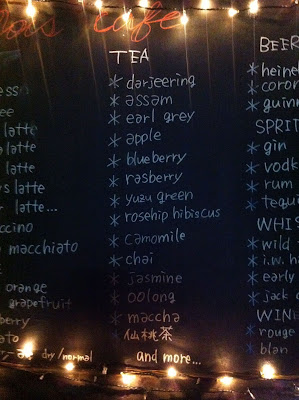 cafe
latte
latte
latte
latte
latte...
macchiato
orange
grapefruit
dry/normal
TEA
* darjeering
* assam
* earl grey
* apple
* blueberry
* rasberry
* yuzu green
* rosehip hibiscus
* camomile
* chai
* jasmine
* oolong
* maccha
* 仙桃茶
and more...
BEER
* heine
* coron
* guinn
SPRIT
* gin
* vodk
* rum
* tequi
WHIS
* wild
* i.w. ha
* early
* jack
WINE
* rouge
* blan